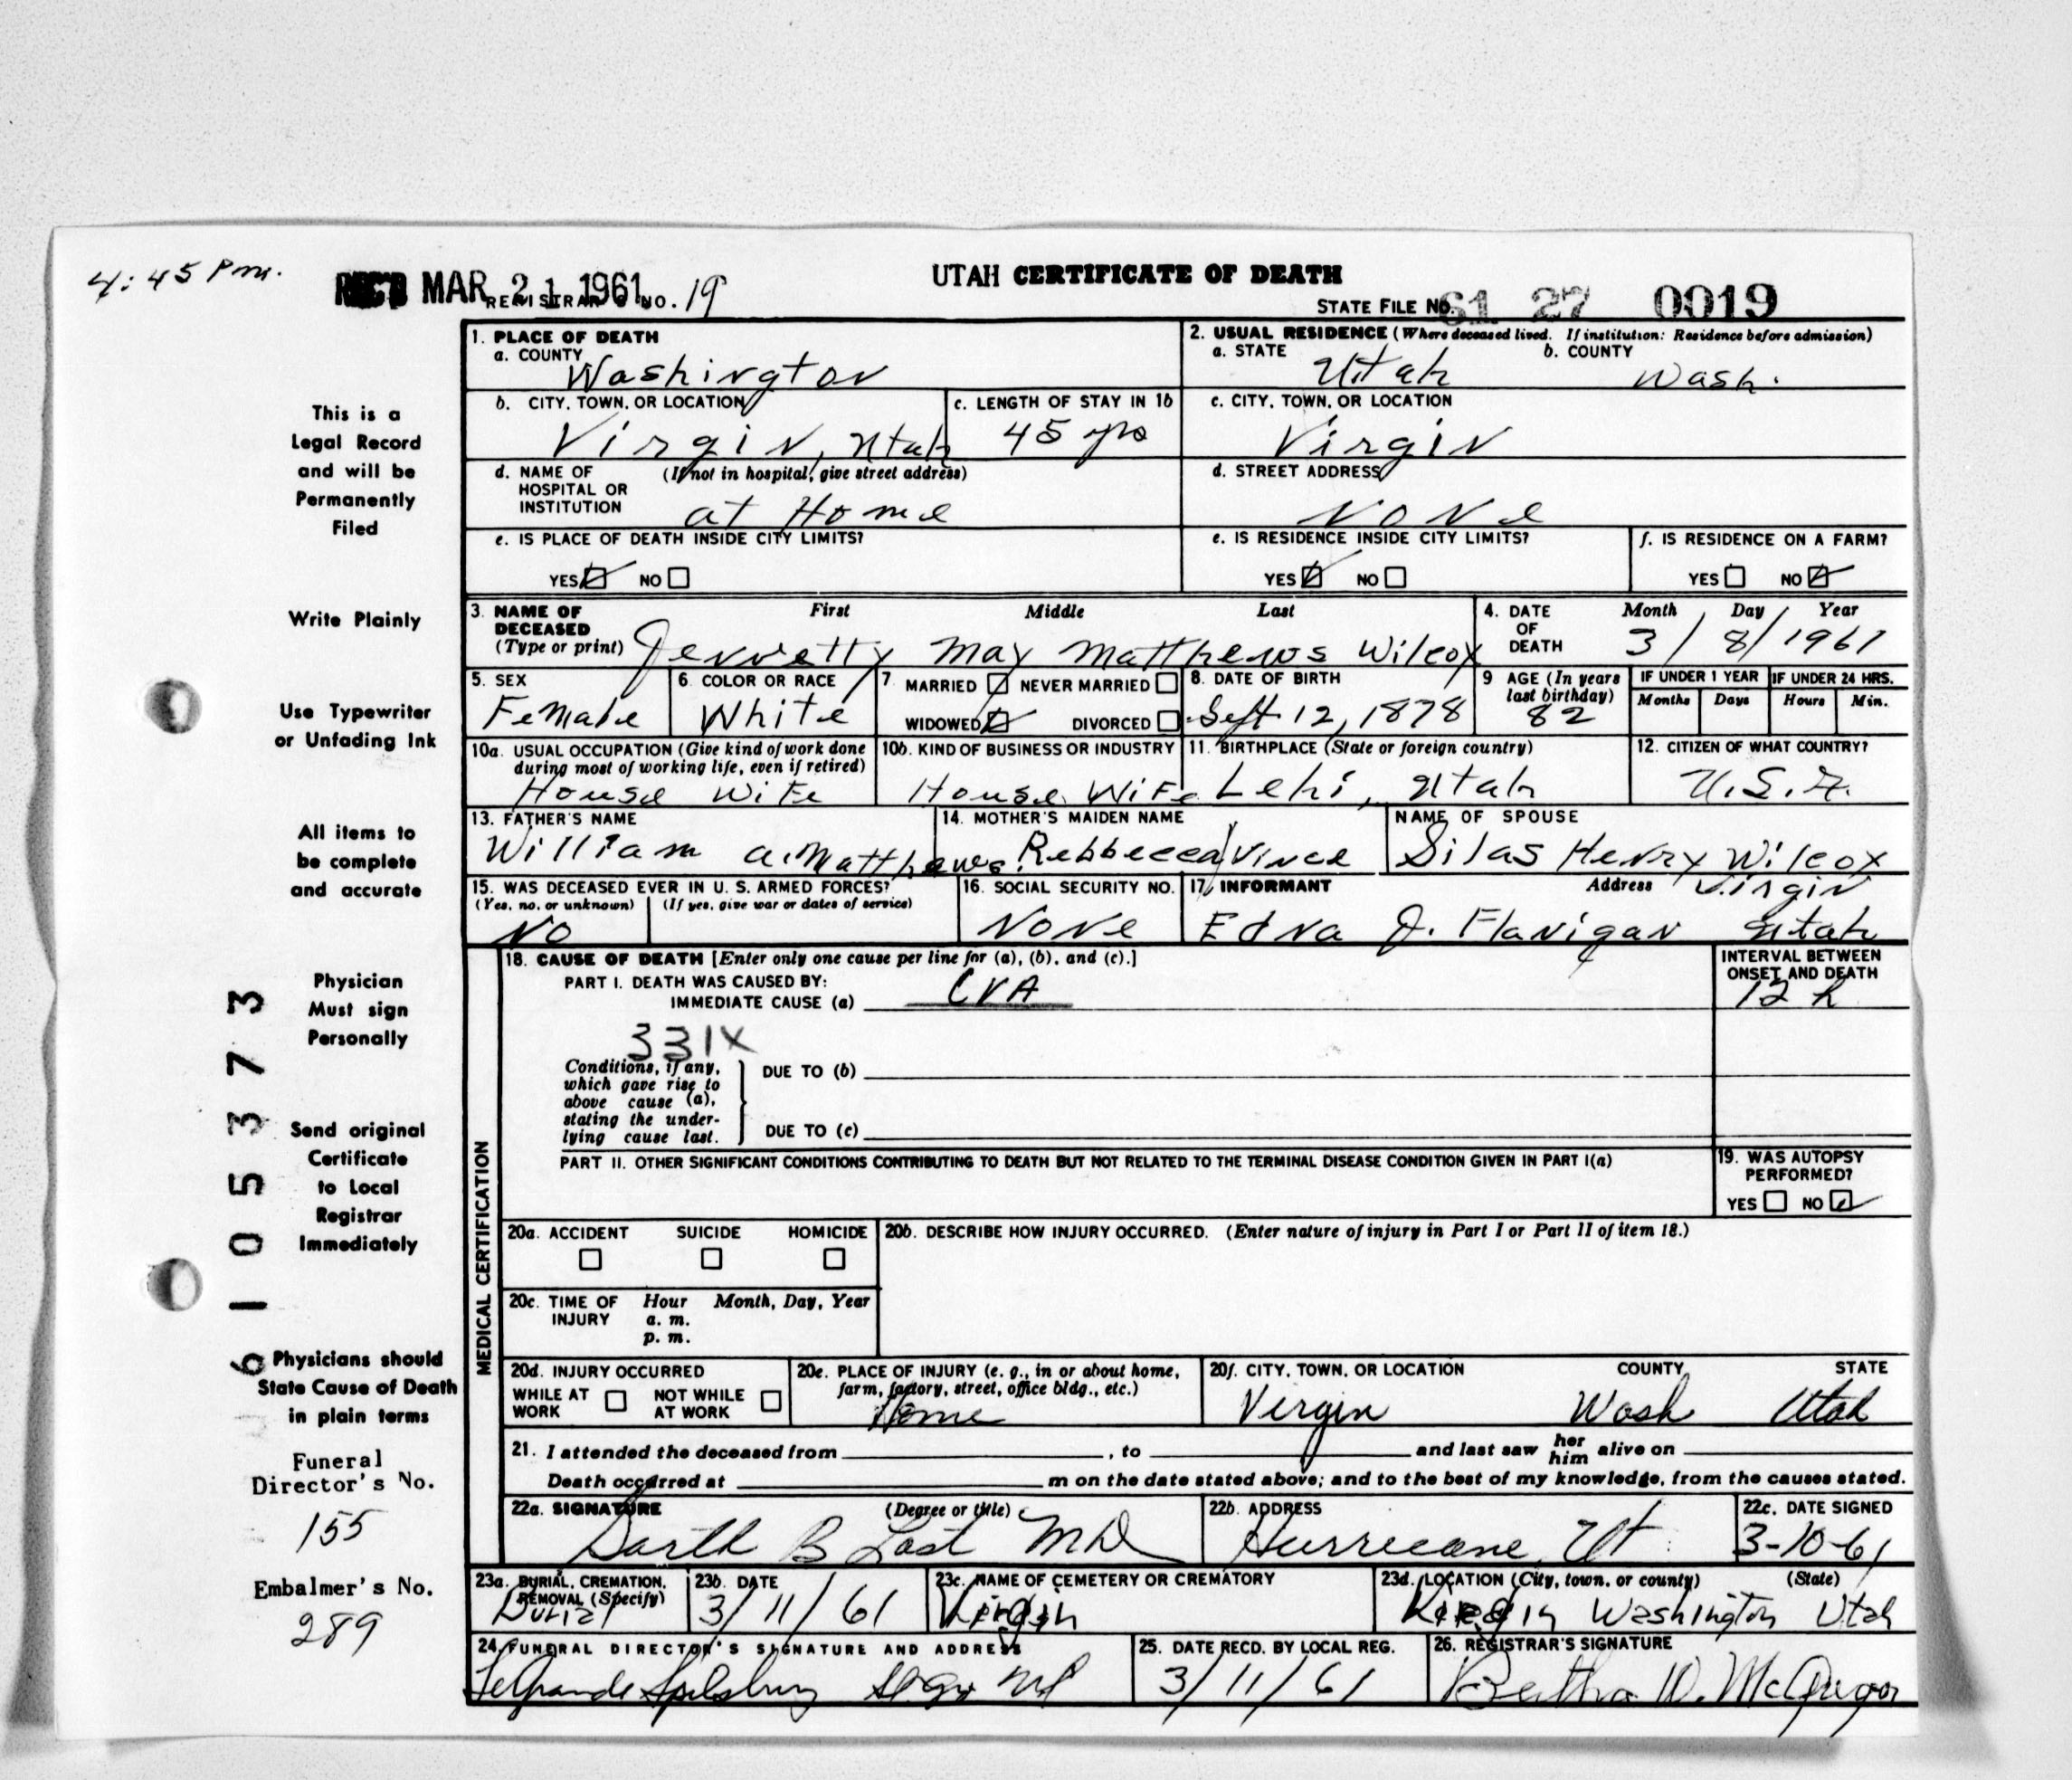 4:45 Pm.
REC'D MAR 21 1961
REGISTRAR'S NO. 19
UTAH CERTIFICATE OF DEATH
STATE FILE NO. 61 27 0019
1. PLACE OF DEATH
a. COUNTY
Washington
2. USUAL RESIDENCE (Where deceased lived. If institution: Residence before admission)
a. STATE
Utah
b. COUNTY
Wash.
b. CITY, TOWN, OR LOCATION
Virgin, Utah
c. LENGTH OF STAY IN 1b
45 yrs
c. CITY, TOWN, OR LOCATION
Virgin
d. NAME OF HOSPITAL OR INSTITUTION
(If not in hospital, give street address)
at Home
d. STREET ADDRESS
None
e. IS PLACE OF DEATH INSIDE CITY LIMITS?
YES NO
e. IS RESIDENCE INSIDE CITY LIMITS?
YES NO
f. IS RESIDENCE ON A FARM?
YES NO
3. NAME OF DECEASED
(Type or print)
First Middle Last
May Matthews Wilcox
4. DATE OF DEATH
Month Day Year
3/8/1961
5. SEX
Female
6. COLOR OR RACE
White
7. MARRIED NEVER MARRIED
WIDOWED DIVORCED
8. DATE OF BIRTH
Sept 12, 1878
9 AGE (In years last birthday)
82
IF UNDER 1 YEAR
Months Days
IF UNDER 24 HRS.
Hours Min.
10a. USUAL OCCUPATION (Give kind of work done during most of working life, even if retired)
House Wife
10b. KIND OF BUSINESS OR INDUSTRY
House Wife
11. BIRTHPLACE (State or foreign country)
Lehi, Utah
12. CITIZEN OF WHAT COUNTRY?
U.S.A.
13. FATHER'S NAME
William A. Matthews
14. MOTHER'S MAIDEN NAME
Rebbecca Vince
NAME OF SPOUSE
Silas Henry Wilcox
15. WAS DECEASED EVER IN U. S. ARMED FORCES?
(Yes, no, or unknown) (If yes, give war or dates of service)
No
16. SOCIAL SECURITY NO.
None
17. INFORMANT Address
Edna J. Flanigan Virgin Utah
MEDICAL CERTIFICATION
18. CAUSE OF DEATH [Enter only one cause per line for (a), (b), and (c).]
PART I. DEATH WAS CAUSED BY:
IMMEDIATE CAUSE (a) CVA
INTERVAL BETWEEN ONSET AND DEATH
12 h
331X
Conditions, if any, which gave rise to above cause (a), stating the underlying cause last.
DUE TO (b)
DUE TO (c)
PART II. OTHER SIGNIFICANT CONDITIONS CONTRIBUTING TO DEATH BUT NOT RELATED TO THE TERMINAL DISEASE CONDITION GIVEN IN PART I(a)
19. WAS AUTOPSY PERFORMED?
YES NO
20a. ACCIDENT SUICIDE HOMICIDE
20b. DESCRIBE HOW INJURY OCCURRED. (Enter nature of injury in Part I or Part II of item 18.)
20c. TIME OF INJURY
Hour Month, Day, Year
a. m.
p. m.
20d. INJURY OCCURRED
WHILE AT WORK NOT WHILE AT WORK
20e. PLACE OF INJURY (e. g., in or about home, farm, factory, street, office bldg., etc.)
Home
20f. CITY, TOWN, OR LOCATION COUNTY STATE
Virgin Wash Utah
21. I attended the deceased from , to and last saw her him alive on
Death occurred at m on the date stated above; and to the best of my knowledge, from the causes stated.
22a. SIGNATURE (Degree or title)
B Last MD
22b. ADDRESS
Hurricane, Ut
22c. DATE SIGNED
3-10-61
23a. BURIAL, CREMATION, REMOVAL (Specify)
Burial
23b. DATE
3/11/61
23c. NAME OF CEMETERY OR CREMATORY
Virgin
23d. LOCATION (City, town, or county) (State)
Virgin Washington Utah
24. FUNERAL DIRECTOR'S SIGNATURE AND ADDRESS
Spilsbury
25. DATE RECD. BY LOCAL REG.
3/11/61
26. REGISTRAR'S SIGNATURE
Bertha W. McGregor
This is a
Legal Record
and will be
Permanently
Filed
Write Plainly
Use Typewriter
or Unfading Ink
All items to
be complete
and accurate
Physician
Must sign
Personally
Send original
Certificate
to Local
Registrar
Immediately
Physicians should
State Cause of Death
in plain terms
Funeral
Director's No.
155
Embalmer's No.
289
6 1 0 5 3 7 3